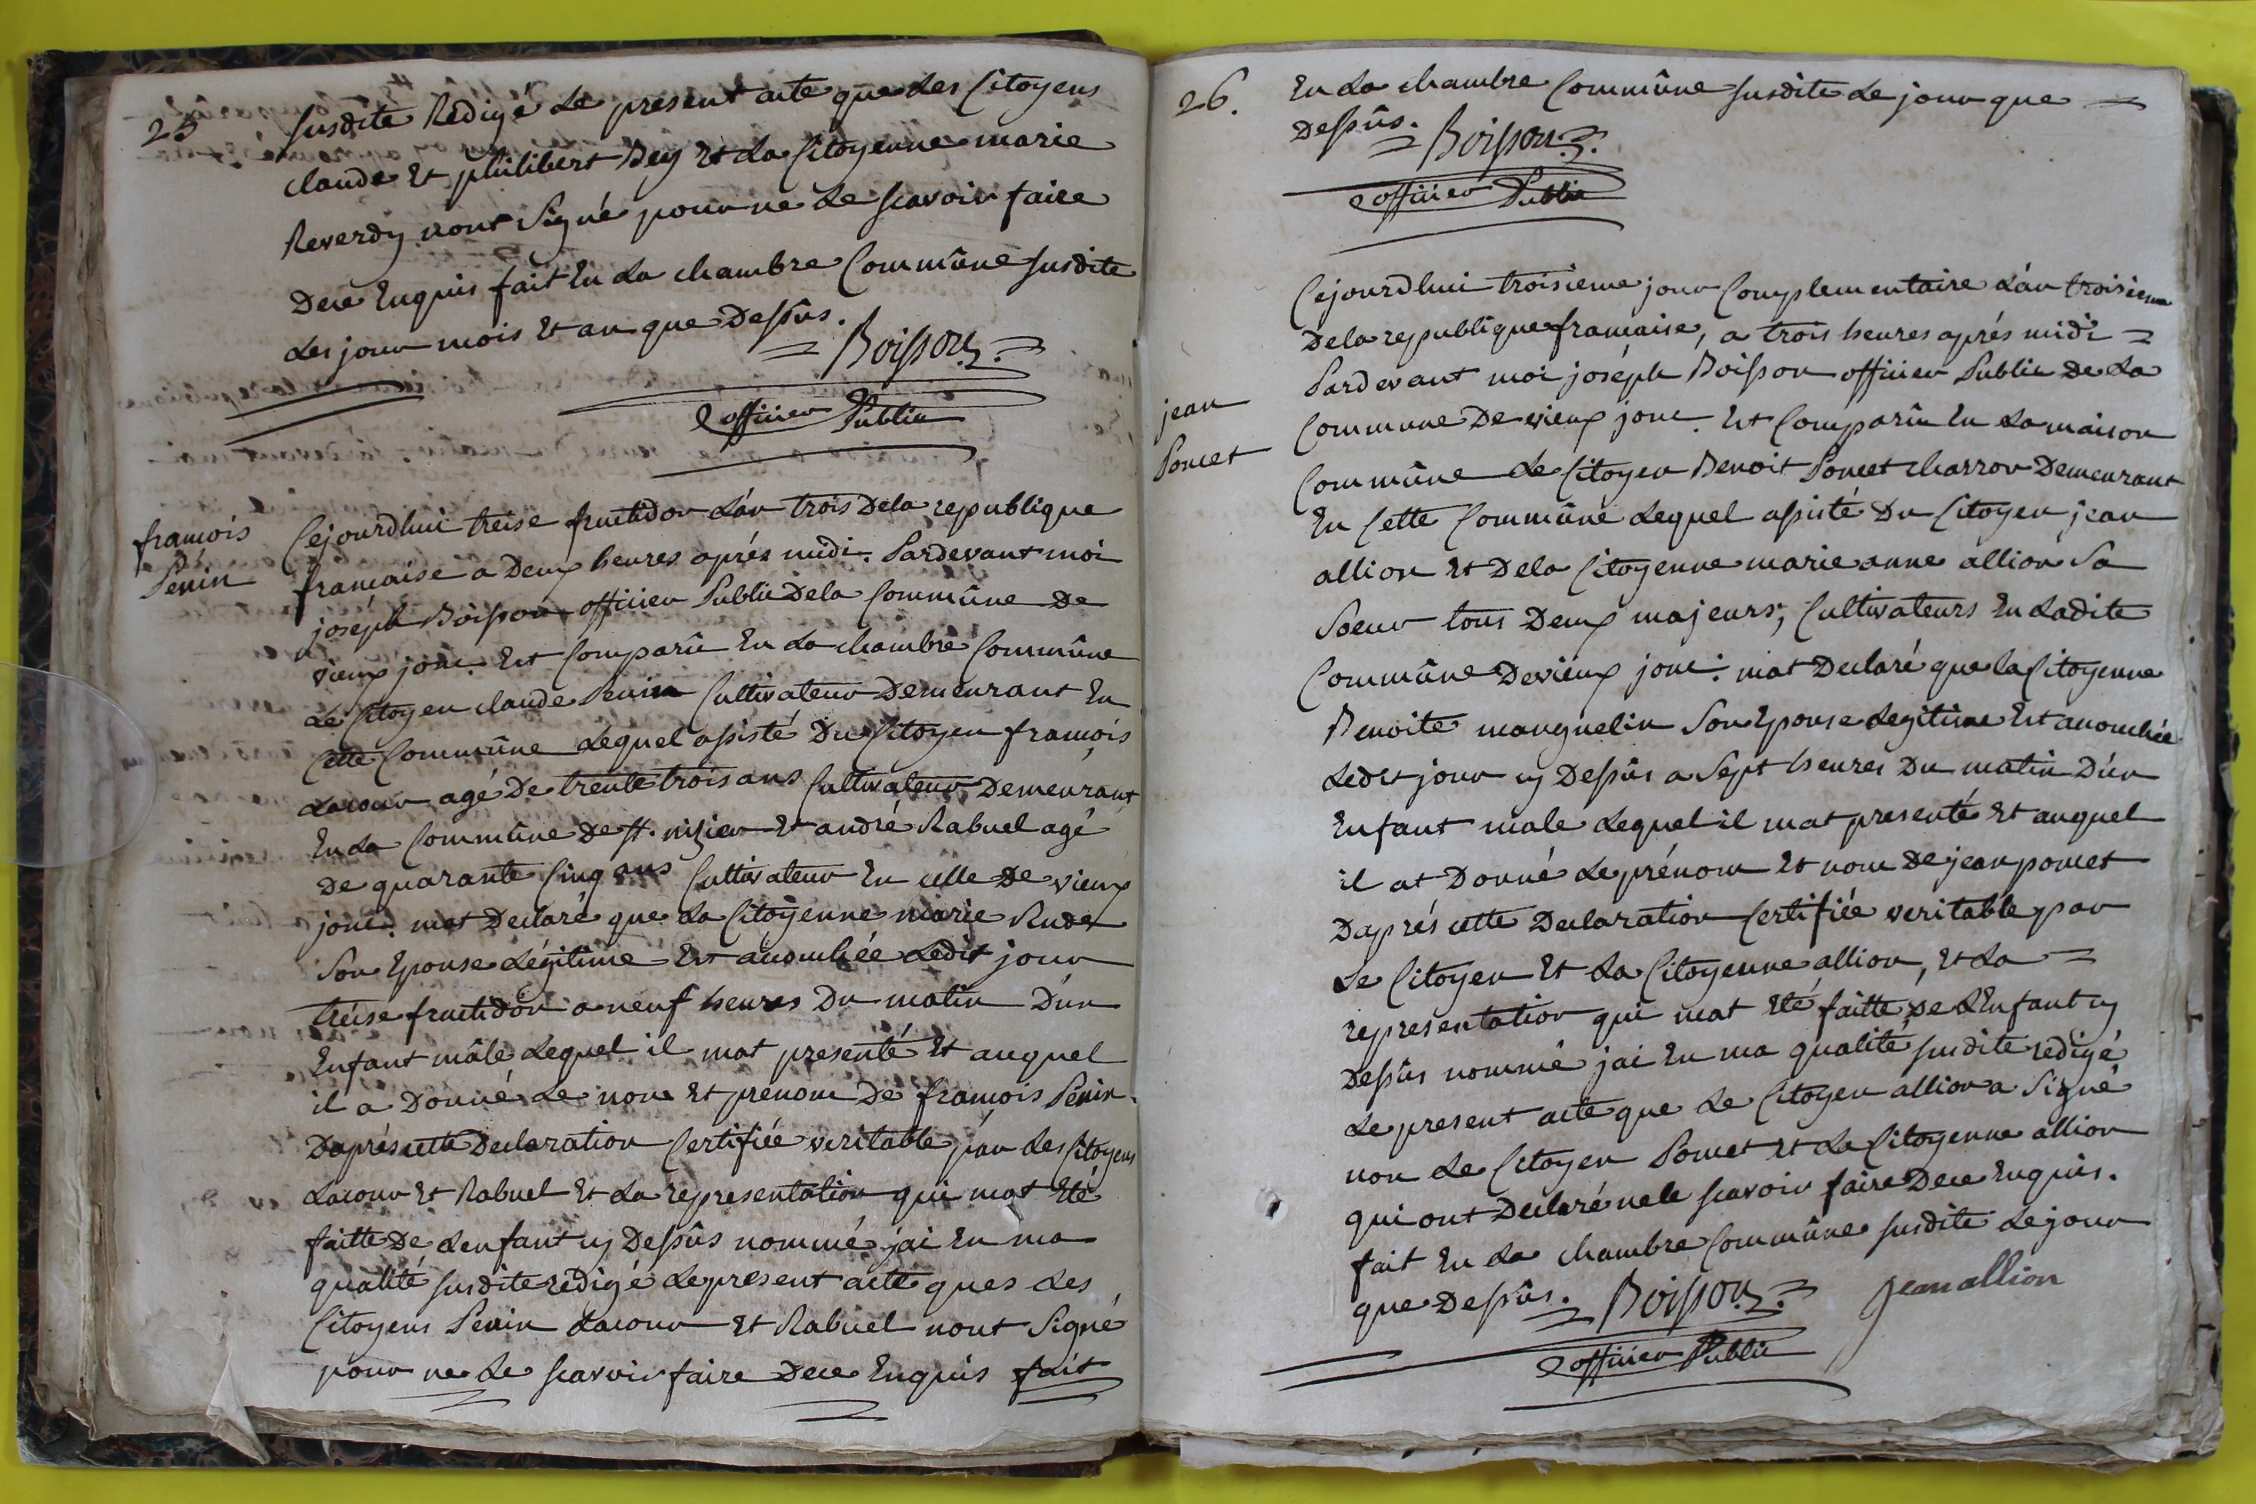 25
susdite Redigé Le present acte que Les Citoyens
claude Et philibert Rey Et La Citoyenne marie
Reverdy nont Signé pour ne Le scavoir faire
Dece Enquis fait En La chambre Commûne susdite
Les jour mois Et an que Dessûs.
Boisson
officier Public
françois
Pénin
Cejourdhui treise fructidor L'an trois Dela republique
francaise a Deux heures après midi. Pardevant moi
joséph Boisson officier Public Dela Commûne De
vieux jonc. Est Comparû En La chambre Commûne
Le Citoyen claude Penin Cultivateur Demeurant En
Cette Commûne Lequel assisté Du Citoyen françois
Lacour agé De trente trois ans Cultivateur Demeurant
En La Commûne De St. nizier Et andré Rabuel agé
De quarante Cinq ans Cultivateur En celle De vieux
jonc. mat Declaré que La Citoyenne marie Rudet
Son Epouse Légitime Est acouchée Ledit jour
tréise fructidor a neuf heures Du matin D'un
Enfant mâle Lequel il mat presenté Et auquel
il a Donné Le nom Et prénom De françois Penin.
Daprés cette Declaration Certifiée veritable par Les Citoyens
Lacour Et Rabuel Et La representation qui mat Eté
faitte De Lenfant cy Dessûs nommé jai En ma
qualité susdite redigé Le present acte ques Les
Citoyens Penin Lacour Et Rabuel nont Signé
pour ne Le scavoir faire Dece Enquis fait
26.
En La chambre Commûne susdite Le jour que
Dessûs.
Boisson
officier Public
jean
Poncet
Cejourdhui troisieme jour Complementaire L'an troisieme
Dela republique francaise, a trois heures aprés midi
Pardevant moi joséph Boisson officier Public De La
Commune De vieux jonc. Est Comparû En La maison
Commûne Le Citoyen Benoit Poncet charron Demeurant
En Cette Commûne Lequel assisté Du Citoyen jean
allion Et Dela Citoyenne marie anne allion Sa
Soeur tous Deux majeurs, Cultivateurs En Ladite
Commûne De vieux jonc. mat Declaré que la Citoyenne
Benoite manguelin Son Epouse Legitime Est acouchée
Ledit jour cy Dessûs a Sept heures Du matin D'un
Enfant male Lequel il mat presenté Et auquel
il at Donné Le prénom Et nom De jean poncet
Daprés cette Declaration Certifiée veritable par
Le Citoyen Et La Citoyenne allion, Et La
representation qui mat Eté faitte De L'Enfant cy
Dessûs nommé jai En ma qualité susdite redigé
Le present acte que Le Citoyen allion a Signé
non Le Citoyen Poncet Et La Citoyenne allion
qui ont Declaré ne le scavoir faire Dece Enquis.
fait En La chambre Commûne susdite Le jour
que Dessûs.
Boisson
Jean allion
officier Public